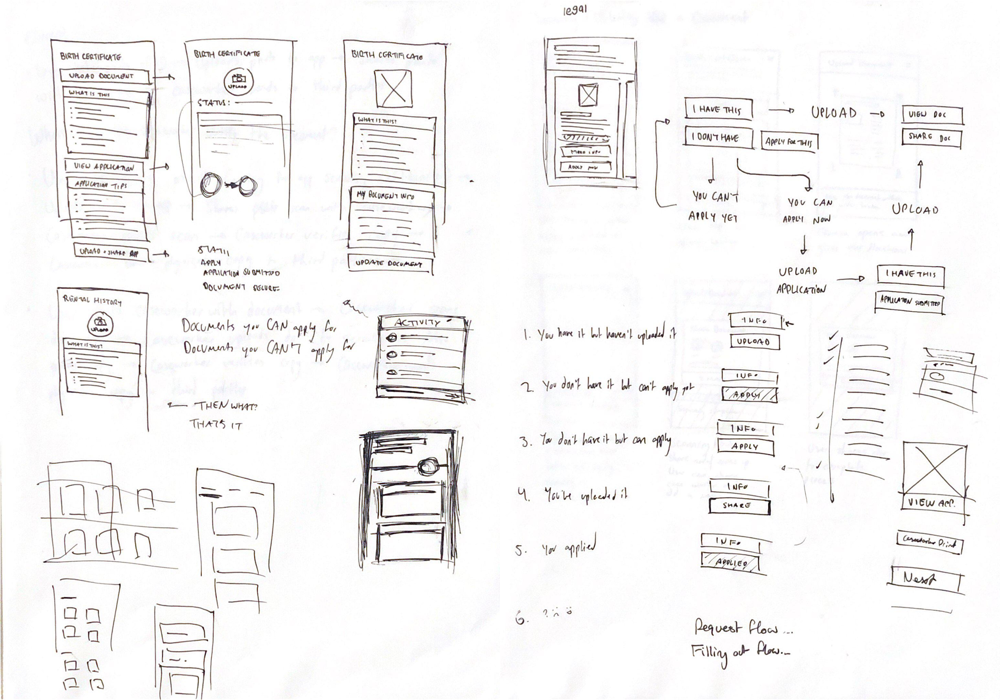 BIRTH CERTIFICATE
UPLOAD DOCUMENT
WHAT IS THIS
VIEW APPLICATION
APPLICATION TIPS
UPLOAD + SHARE APP
BIRTH CERTIFICATE
UPLOAD
STATUS:
STATUS
APPLY
APPLICATION SUBMITTED
DOCUMENT
BIRTH CERTIFICATE
WHAT IS THIS?
MY DOCUMENT INFO
UPDATE DOCUMENT
RENTAL HISTORY
UPLOAD
WHAT IS THIS?
DOCUMENTS YOU CAN apply for
DOCUMENTS YOU CAN'T apply for
← THEN WHAT?
THAT'S IT
ACTIVITY
legal
MORE INFO
I HAVE THIS
I DON'T HAVE
APPLY FOR THIS
UPLOAD
VIEW DOC
SHARE DOC
YOU CAN'T
APPLY YET
YOU CAN
APPLY NOW
UPLOAD
UPLOAD
APPLICATION
I HAVE THIS
APPLICATION SUBMITTED
1. You have it but haven't uploaded it
INFO
UPLOAD
2. You don't have it but can't apply yet
INFO
APPLY
3. You don't have it but can apply
INFO
APPLY
4. You've uploaded it
INFO
SHARE
5. You applied
INFO
APPLIED
6. ?
VIEW APP.
Next
Request flow...
Filling out flow...